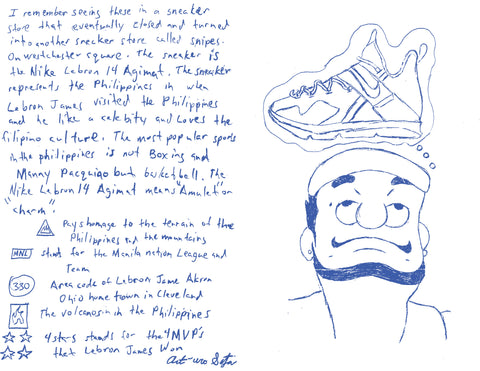 I remember seeing these in a sneaker
store that eventually closed and turned
into another sneaker store called snipes.
On westchester square. The sneaker is
the Nike Lebron 14 Agimat. The sneaker
represents the Philippines in when
Lebron James visited the Philippines
and he like a celebity and Loves the
filipino culture. The most popular sports
in the philippines is not Boxing and
Manny Pacquiao but basketball. The
Nike Lebron 14 Agimat means "Amulet" or
"charm".
Pays homage to the terrain of the
Philippines and the mountains
MNL stands for the Manila nation League and
Team
330 Area code of Lebron Jame Akron
Ohio home town in Cleveland
The volcanos in the Philippines
4 stars stands for the 4 MVP's
that Lebron James Won